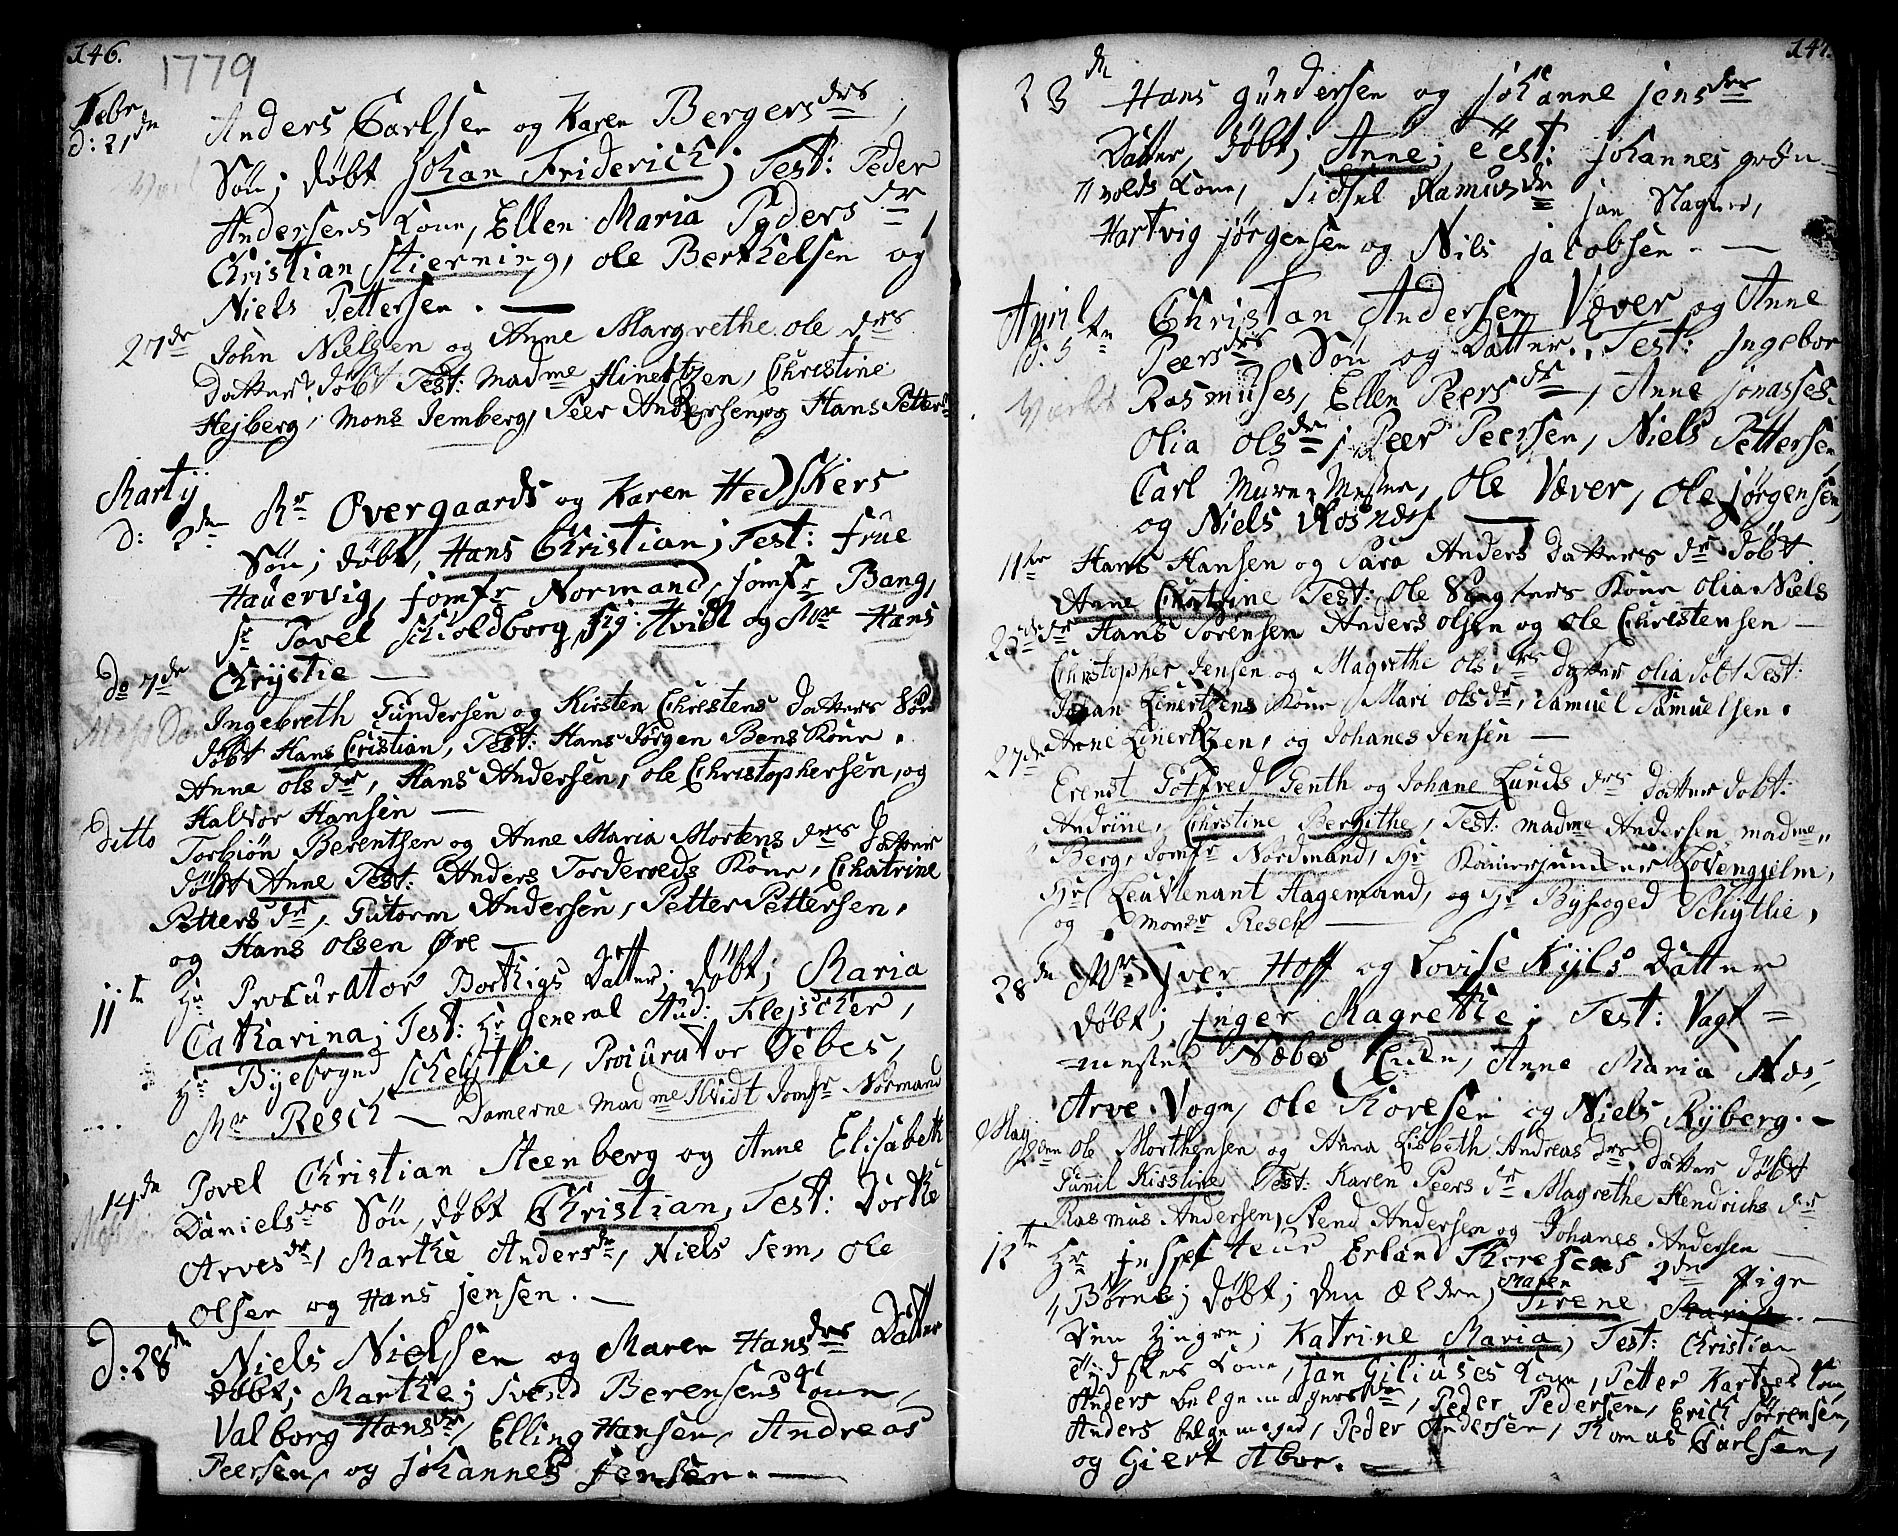 146.
1779
Febr
d: 21 dn
Anders Carlsen og Karen Bergers drs,
Søn; døbt Johan Friderich; Test: Peder
Andersens Kone, Ellen Maria Pyders dr,
Christian Stierning, ole Berthelsen og
Niels Pettersen. —
27 de John Nielsen og Anne Margrethe ole drs
Datter, døbt Test: Mad me Hinertzen, Christine
Hejberg, Mons Jemberg, Peer Andersen, og Hans Petters
Martij
d: 2 dn Mr Overgaards og Karen Hedskers
Søn; døbt, Hans Christian; Test: Frue
Hauervig, Jomfr Normand, Jomfr Bang,
Sr Povel Schioldborg, Sig: Hvidt og Mr Hans
Chrystie —
do 7 de
Ingebreth Gundersen og Kirsten Christens Datters Søn
døbt Hans Cristian, Test: Hans Jørgen Bens Kone.
Anne ols dr, Hans Andersen, ole Christophersen, og
Halvor Hansen —
Ditto Torbiön Berentsen og Anne Maria Mortens drs Datter
døbt Anne Test: Anders Torderøeds Kone, Chatrine
Petters dr, Gutorm Andersen, Petter Pettersen,
og Hans olsen Øre —
11 te Hr Procurator Borthigs Datter; døbt; Maria
Catharina; Test: Hr General Aud: Flejscher,
Hr Byefogd Schejthie, Procurator Debes,
Mr Resch — Damerne mad me Hvidt Jomfr Normand
14 dn Povel Christian Steenberg og Anne Elisabeth
Daniels drs Søn, døbt Christian, Test: Dorthe
Arves dr, Marthe Anders dr, Niels Sem, ole
olsen og Hans Jensen. —
d: 28 dn Niels Nielsen og Maren Hans drs Datter
døbt; Marthe; Svend Berensens Kone,
Valborg Hans dr, Elling Hansen, Andreas
Peersen, og Johannes Jensen. —
147.
28 dn Hans Gundersen og Johanne Jens drs
Datter, døbt; Anne; Test: Johannes grøn-
volds Kone, Sidsel Ramus dr Jan Slagter,
Hartvig Jørgensen og Nils Jacobsen. —
April
d: 5 te Christian Andersen Væver og Anne
Peers drs Søn og Datter. Test: Ingebor
Rasmuses, Ellen Peers dr, Anne Jonasses.
Olia Ols dr; Peer Peersen, Niels Pettersen,
Carl Mure Mester, Ole Væver, Ole Jørgensen,
og Niels Rosnæs —
11 te Hans Hansen og Sara Anders Datters dr døbt
Anne Christine Test: Ole Vogters Kone Olia Niels
dr Hans Sörensen Anders olsen og ole Christensen —
25 de Christopher Jensen og Magrethe ols drs Datter olia døbt Test:
Johan Linertzens Kone, Mari ols dr, Samuel Samuelsen,
Arne Linertzen, og Johanes Jensen —
27 de
Erenst Gotfred Genth og Johane Lunds drs Datter døbt:
Andrine, Christine Bergithe, Test: madme Andersen madme
Berg, Jomfr Nordmand, Hr Kamerjunker Lövengjelm,
Hr Leuvtenant Hagemand, og Hr Byfoged Schytlie,
og Monsr Resch —
28 dn Mr Iver Hoff og Lovise Kyls Datter
døbt; Inger Magrethe; Test: Vagt=
=mester Næbes Enke, Anne Maria Næs,
Arve Vogn, Ole Tovesen og Niels Ryberg. —
May
2 den ole Morthensen og Anna Lisbeth Andreas drs Datter døbt
Gunil Kirstine Test: Karen Peers dr Magrethe Hendrichs dr
Rasmus Andersen, Svend Andersen og Johanes Andersen —
12 te Hr Inspecteur Erland Thoresens 2 de Pige
Børne; døbt; den ælden; Maren Sirene
den Yngre; Katrine Maria; Test: Christian
Tydskes Kone, Jan Giliuses Kone, Petter Kartved Kone,
Anders belgemagers dr, Peder Pedersen, Erich Sörrensen,
Anders belgemager, Peder Andersen, Tomas Carlsen,
og Giert Abor. —